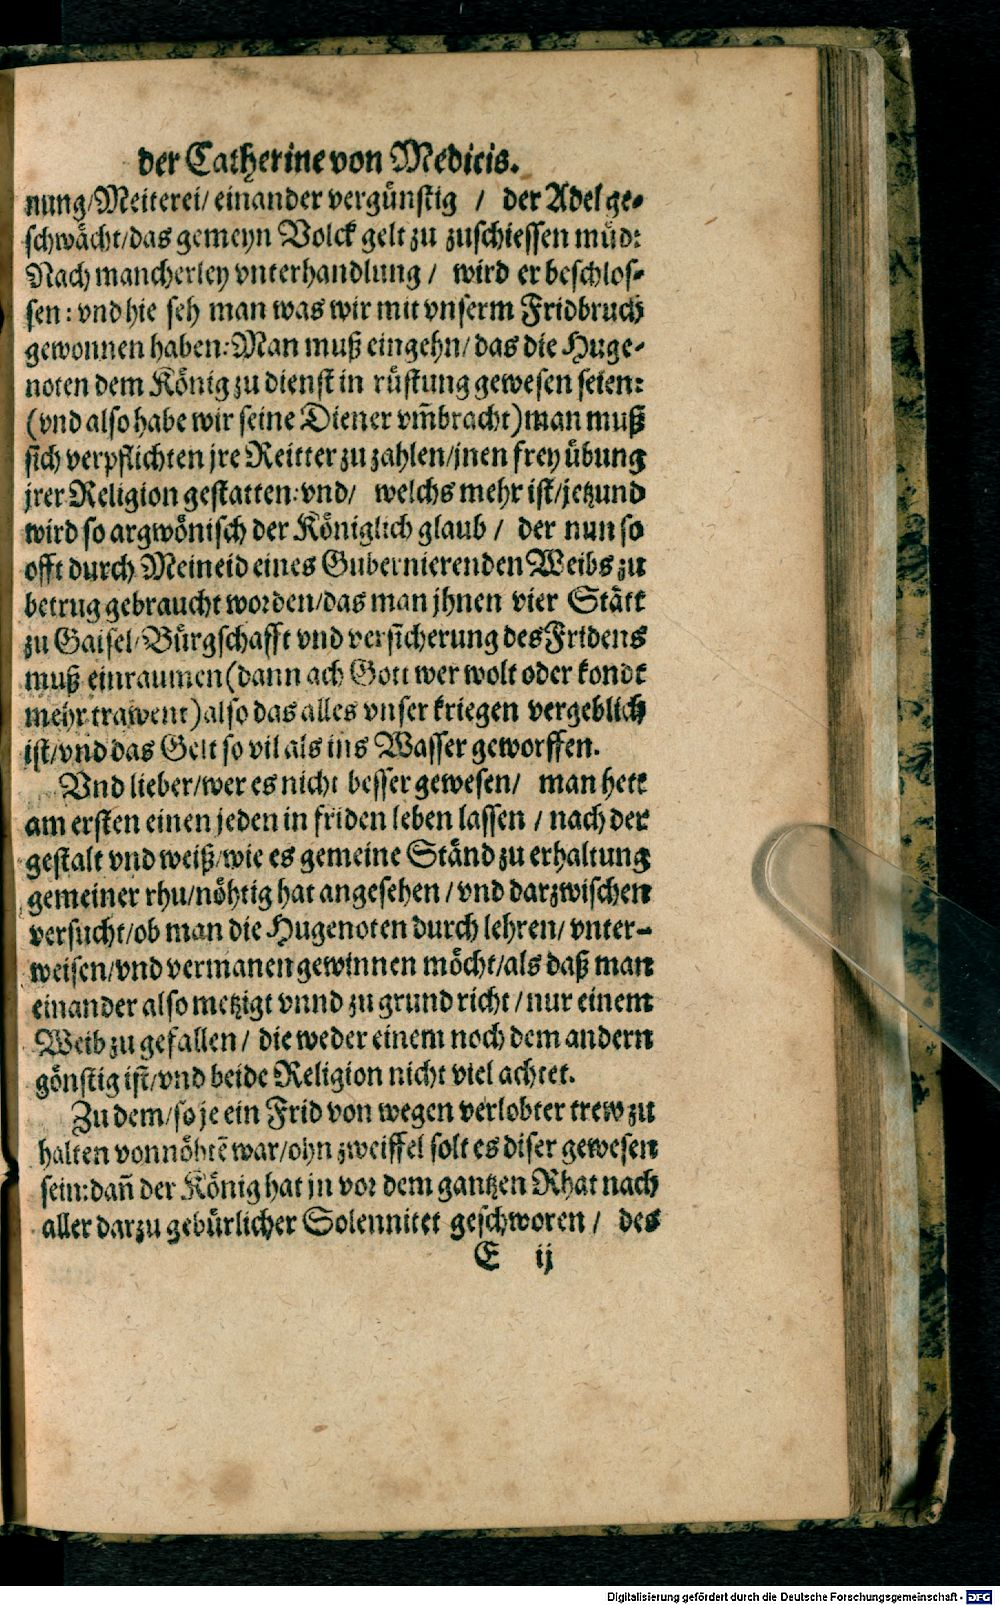 der Catherine von Medicis.
nung/Meiterei/ einander vergünstig / der Adel ge-
schwächt/das gemeyn Volck gelt zu zuschiessen müd:
Nach mancherley vnterhandlung / wird er beschlos-
sen: vnd hie seh man was wir mit vnserm Fridbruch
gewonnen haben: Man muß eingehn/ das die Huge-
noten dem König zu dienst in rüstung gewesen seien:
(vnd also habe wir seine Diener vm̃bracht) man muß
sich verpflichten jre Reitter zu zahlen/jnen frey übung
jrer Religion gestatten: vnd/ welchs mehr ist/jetzund
wird so argwönisch der Königlich glaub / der nun so
offt durch Meineid eines Gubernierenden Weibs zu
betrug gebraucht worden/das man jhnen vier Stätt
zu Gaisel/Bürgschafft vnd versicherung des Fridens
muß einraumen (dann ach Gott wer wolt oder kondt
mehr trawent) also das alles vnser kriegen vergeblich
ist/vnd das Gelt so vil als ins Wasser geworffen.
Vnd lieber/wer es nicht besser gewesen/ man hett
am ersten einen jeden in friden leben lassen / nach der
gestalt vnd weiß/wie es gemeine Ständ zu erhaltung
gemeiner rhu/nöhtig hat angesehen / vnd darzwischen
versucht/ob man die Hugenoten durch lehren/ vnter-
weisen/vnd vermanen gewinnen möcht/als daß man
einander also metzigt vnnd zu grund richt / nur einem
Weib zu gefallen / die weder einem noch dem andern
gönstig ist/vnd beide Religion nicht viel achtet.
Zu dem/so je ein Frid von wegen verlobter trew zu
halten vonnöhtē war/ohn zweiffel solt es diser gewesen
sein: dañ der König hat jn vor dem gantzen Rhat nach
aller darzu gebürlicher Solennitet geschworen / des
E ij
Digitalisierung gefördert durch die Deutsche Forschungsgemeinschaft - DFG